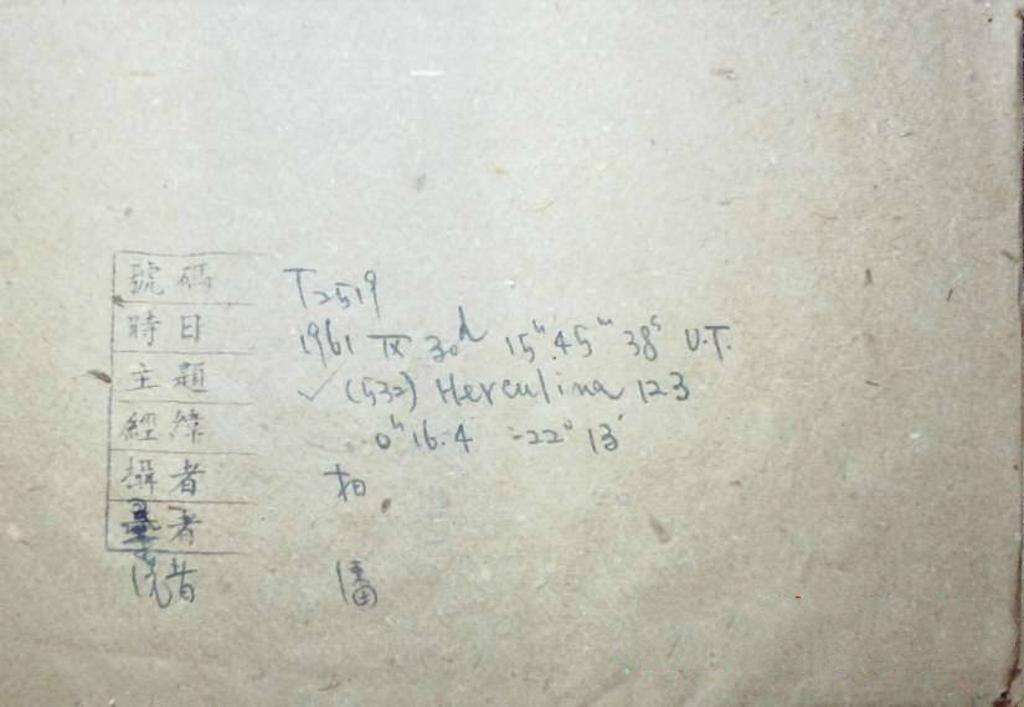 號碼 T2519
時日 1961 IX 30d 15h 45m 38s U.T.
主題 ✓ (532) Herculina 123
經緯 0h 16.4 -22° 13′
攝者
者
洗者 潘